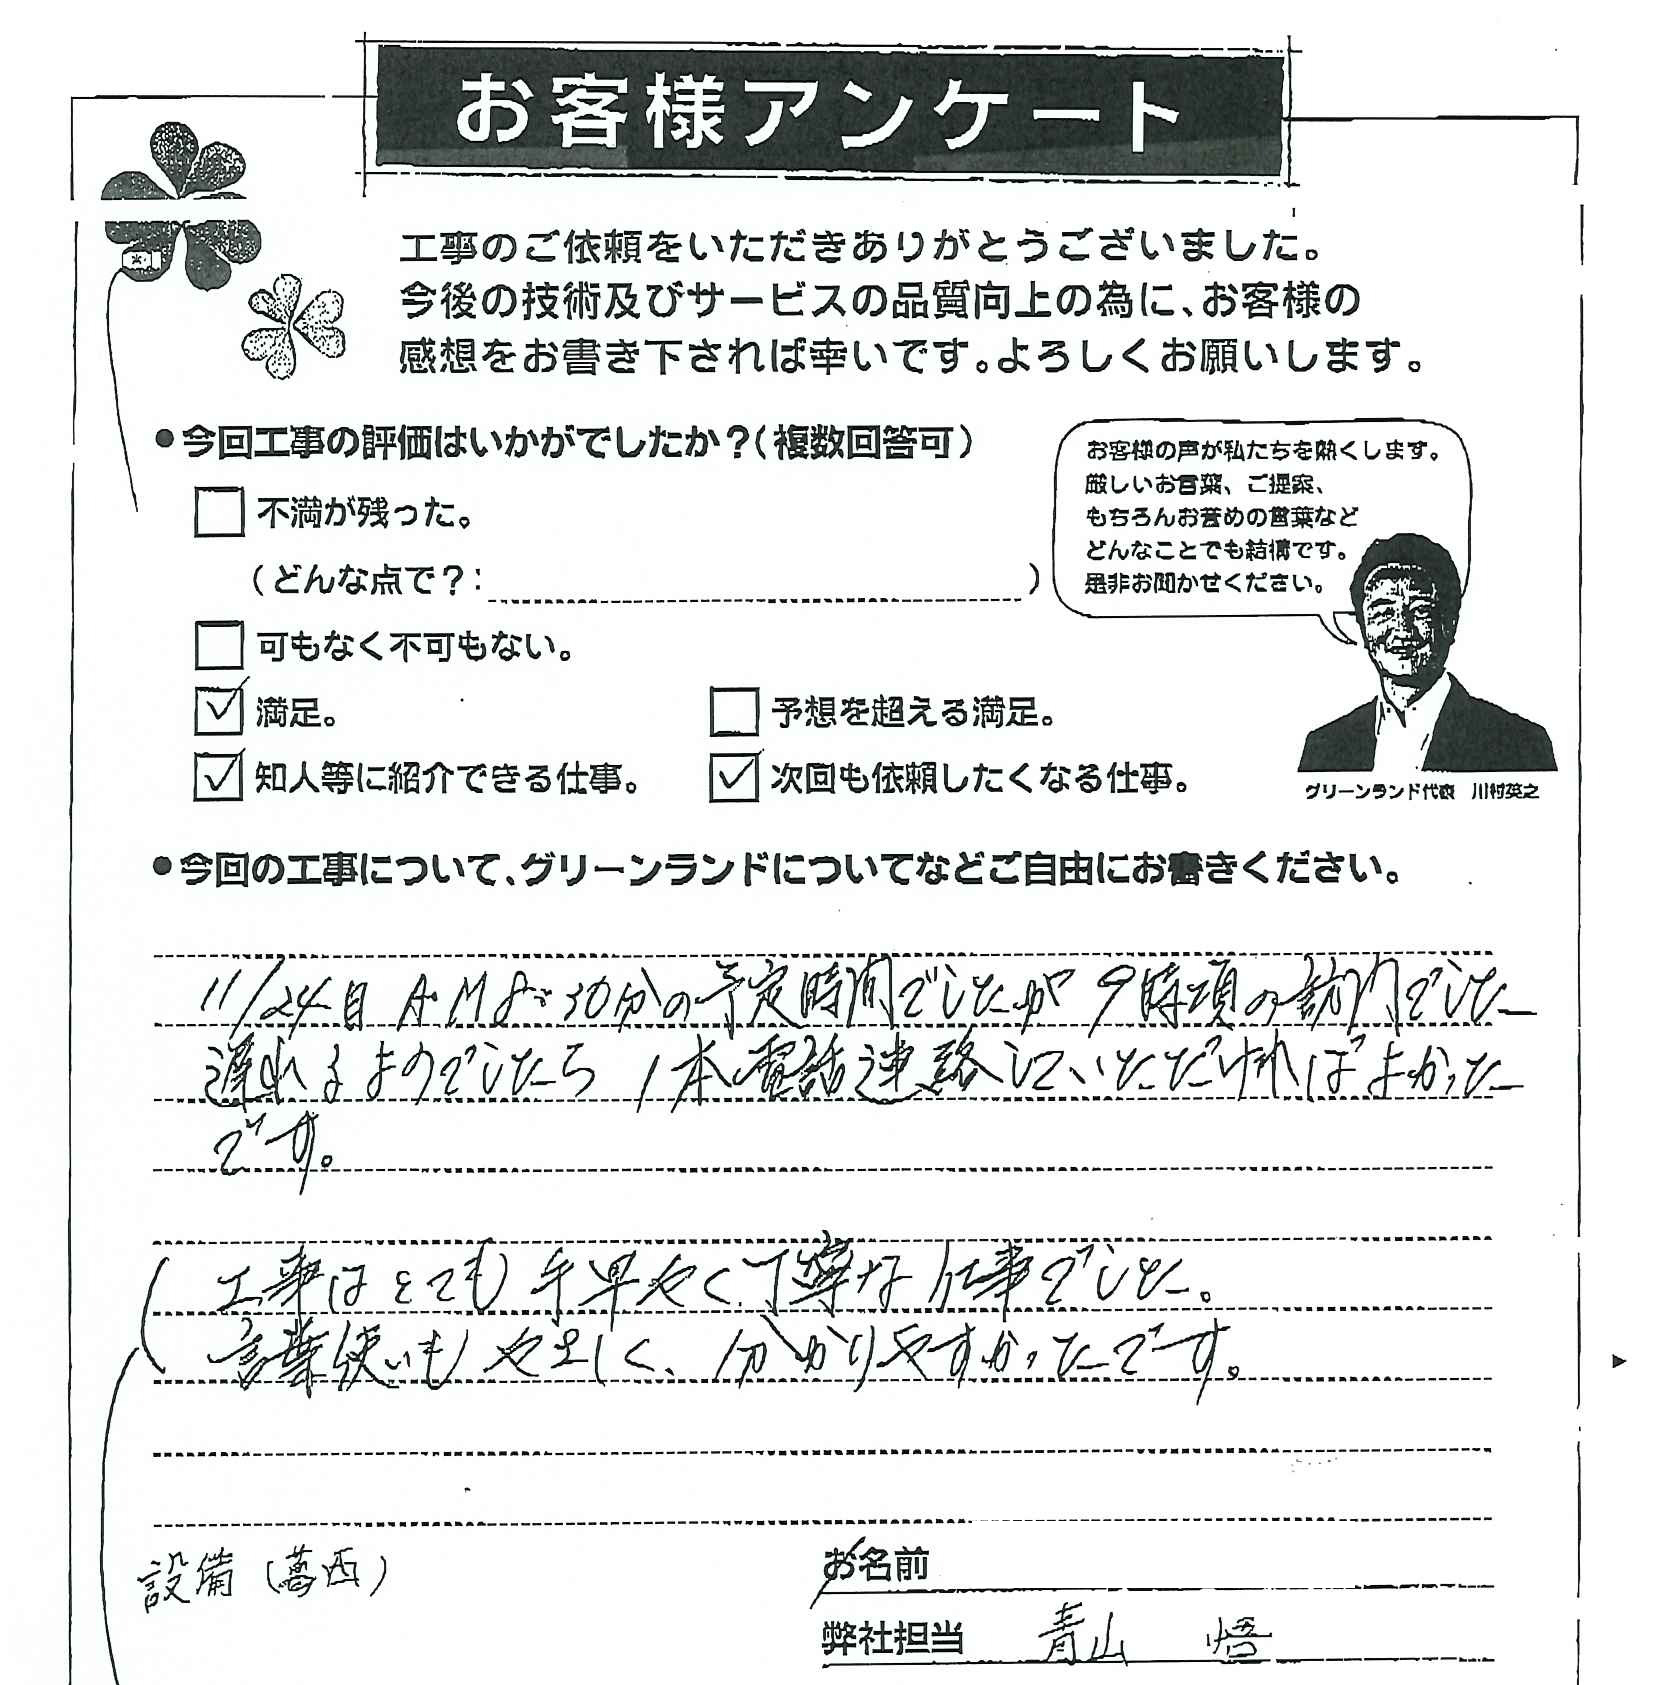 お客様アンケート
工事のご依頼をいただきありがとうございました。
今後の技術及びサービスの品質向上の為に、お客様の
感想をお書き下されば幸いです。よろしくお願いします。
●今回工事の評価はいかがでしたか？(複数回答可)
不満が残った。
(どんな点で？: )
可もなく不可もない。
満足。
予想を超える満足。
知人等に紹介できる仕事。
次回も依頼したくなる仕事。
お客様の声が私たちを熱くします。
厳しいお言葉、ご提案、
もちろんお誉めの言葉など
どんなことでも結構です。
是非お聞かせください。
グリーンランド代表 川村英之
●今回の工事について、グリーンランドについてなどご自由にお書きください。
11/24日 A.M 8:30分の予定時間でしたが 9時頃の訪門でした
遅れるよのでしたら 1本電話連絡していただければよかった
です。
工事はとても手早やく丁寧な仕事でした。
言葉使いもやさしく、分かりやすかったです。
設備 (葛西)
お名前
弊社担当 青山 悟